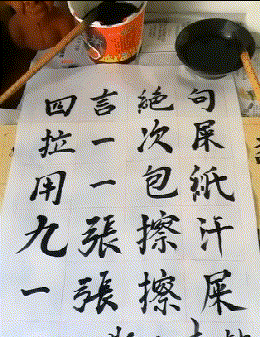 四言絕句
拉一次屎
用一包紙
九張擦汗
一張擦屎